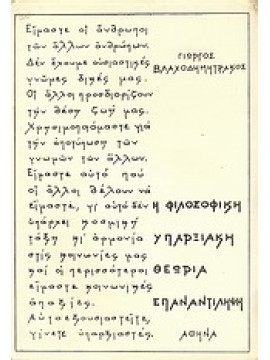 Είμαστε οἱ ἄνθρωποι
τῶν ἄλλων ἀνθρώπων.
Δέν ἔχουμε οὐσιαστικές
γνῶμες δικές μας.
Οἱ ἄλλοι προσδιορίζουν
τήν θέση ζωή μας.
Χρησιμοποιούμαστε γιά
τήν ἀποτύπωση τῶν
γνωμῶν τῶν ἄλλων.
Είμαστε αὐτό πού
οἱ ἄλλοι θέλουν νά
εἴμαστε, γι αὐτό δέν
ὑπάρχει κοσμική
τάξη κι ἁρμονία
στίς κοινωνίες μας
καί οἱ περισσότεροι
εἴμαστε κοινωνικές
ἀπαξίες.
Αὐτοεξουσιαστεῖτε,
γίνετε ὑπαρξιαστές.
ΓΙΩΡΓΟΣ
ΒΛΑΧΟΔΗΜΗΤΡΑΚΟΣ
Η ΦΙΛΟΣΟΦΙΚΗ
ΥΠΑΡΞΙΑΚΗ
ΘΕΩΡΙΑ
ΕΠΑΝΑΝΤΙΛΗΨΗ
ΑΘΗΝΑ